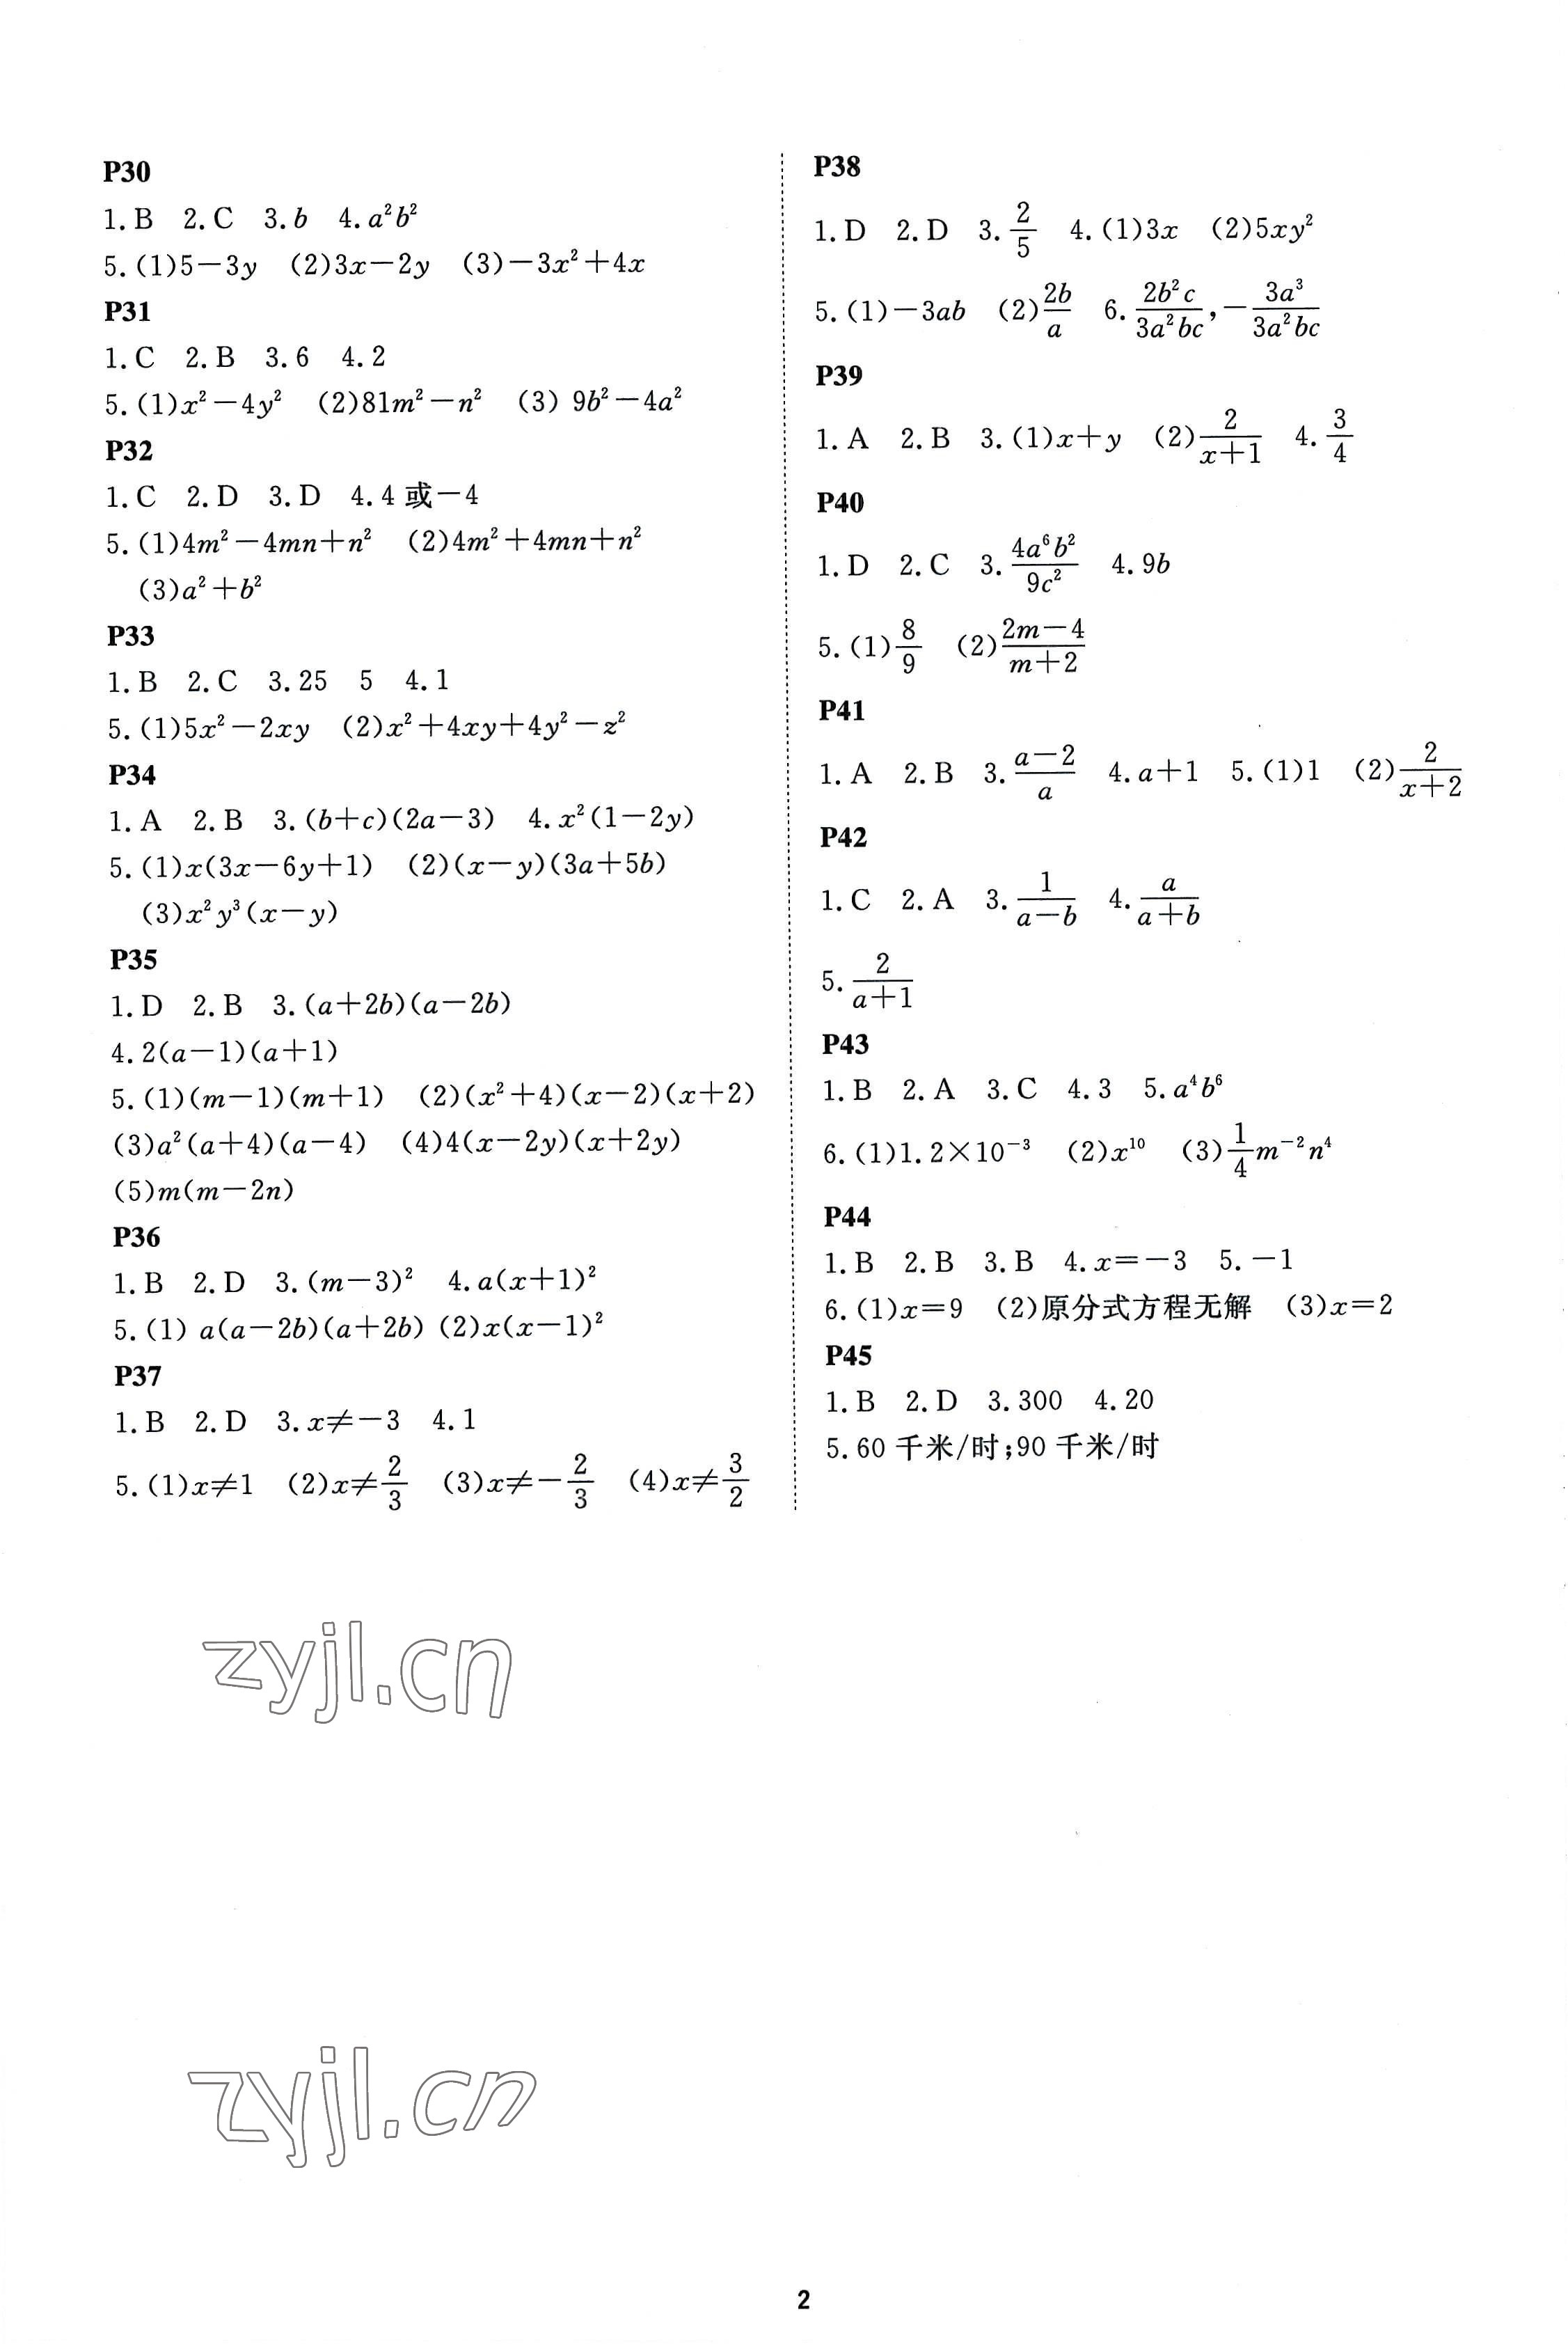 P30
1.B 2.C 3.b 4.a²b²
5.(1)5-3y (2)3x-2y (3)-3x²+4x
P31
1.C 2.B 3.6 4.2
5.(1)x²-4y² (2)81m²-n² (3) 9b²-4a²
P32
1.C 2.D 3.D 4.4或-4
5.(1)4m²-4mn+n² (2)4m²+4mn+n²
(3)a²+b²
P33
1.B 2.C 3.25 5 4.1
5.(1)5x²-2xy (2)x²+4xy+4y²-z²
P34
1.A 2.B 3.(b+c)(2a-3) 4.x²(1-2y)
5.(1)x(3x-6y+1) (2)(x-y)(3a+5b)
(3)x²y³(x-y)
P35
1.D 2.B 3.(a+2b)(a-2b)
4.2(a-1)(a+1)
5.(1)(m-1)(m+1) (2)(x²+4)(x-2)(x+2)
(3)a²(a+4)(a-4) (4)4(x-2y)(x+2y)
(5)m(m-2n)
P36
1.B 2.D 3.(m-3)² 4.a(x+1)²
5.(1) a(a-2b)(a+2b) (2)x(x-1)²
P37
1.B 2.D 3.x≠-3 4.1
5.(1)x≠1 (2)x≠2/3 (3)x≠-2/3 (4)x≠3/2
P38
1.D 2.D 3.2/5 4.(1)3x (2)5xy²
5.(1)-3ab (2)2b/a 6.2b²c/3a²bc,-3a³/3a²bc
P39
1.A 2.B 3.(1)x+y (2)2/(x+1) 4.3/4
P40
1.D 2.C 3.4a⁶b²/9c² 4.9b
5.(1)8/9 (2)(2m-4)/(m+2)
P41
1.A 2.B 3.(a-2)/a 4.a+1 5.(1)1 (2)2/(x+2)
P42
1.C 2.A 3.1/(a-b) 4.a/(a+b)
5.2/(a+1)
P43
1.B 2.A 3.C 4.3 5.a⁴b⁶
6.(1)1.2×10⁻³ (2)x¹⁰ (3)1/4m⁻²n⁴
P44
1.B 2.B 3.B 4.x=-3 5.-1
6.(1)x=9 (2)原分式方程无解 (3)x=2
P45
1.B 2.D 3.300 4.20
5.60千米/时;90千米/时
zyjl.cn
zyjl.cn
2